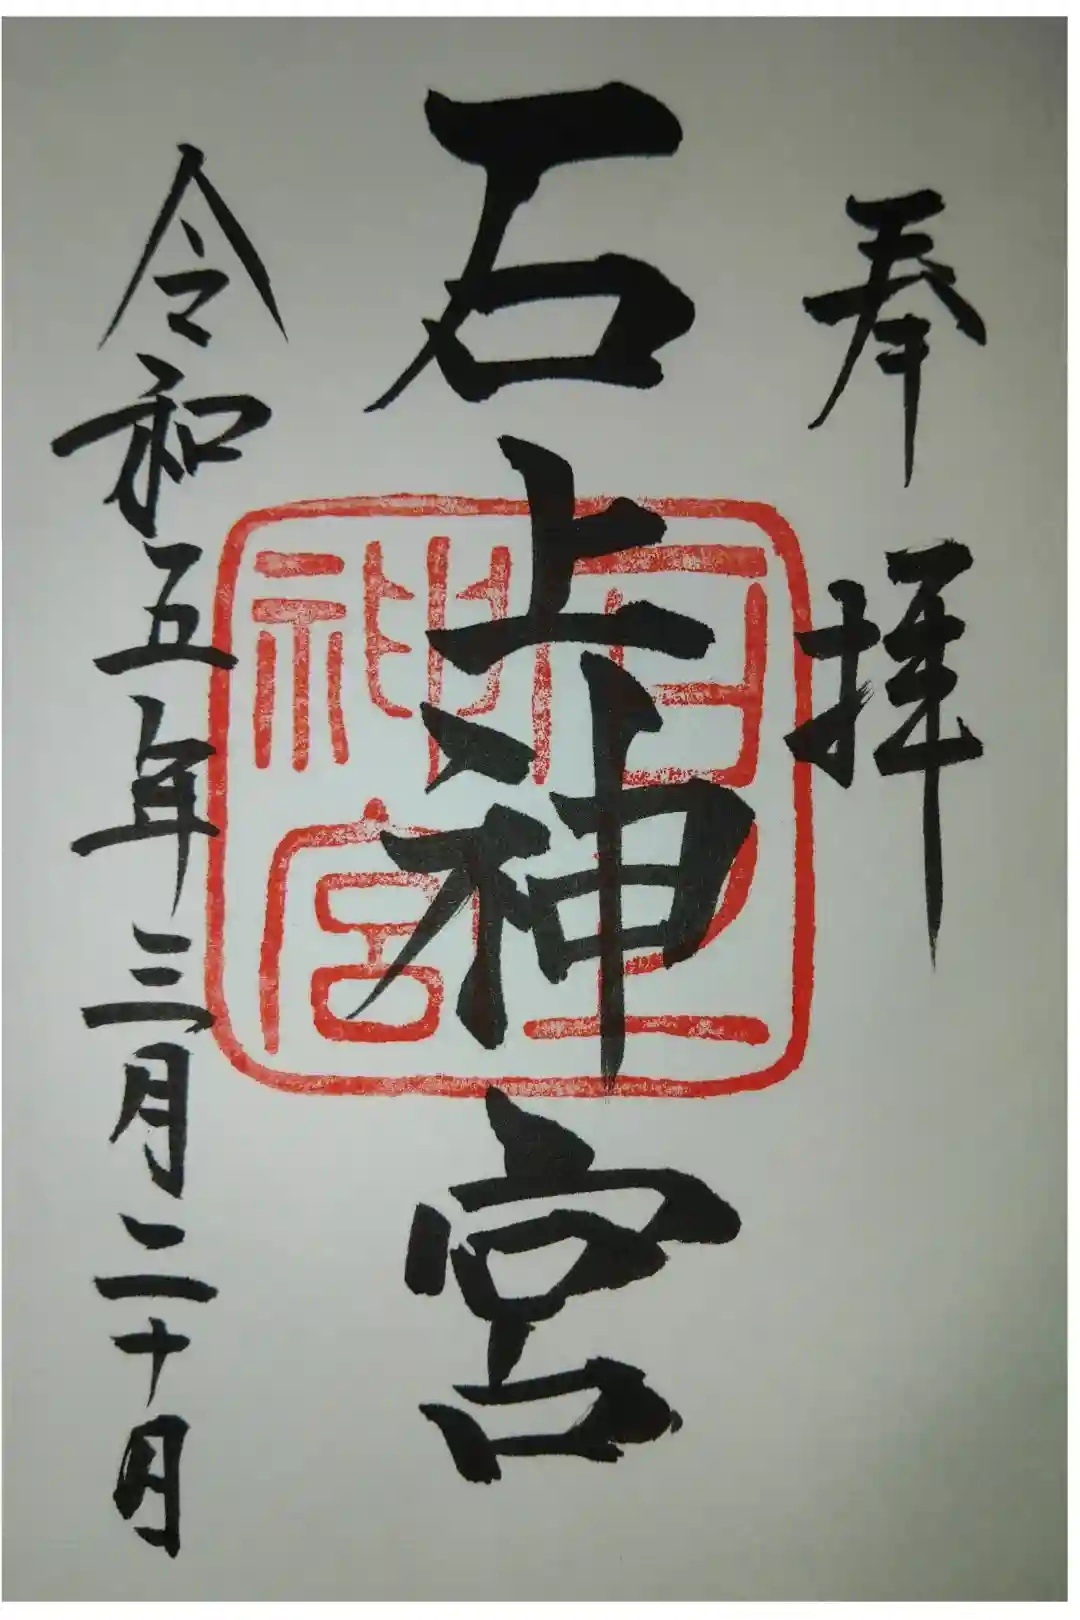 奉拝
石上神宮
石上神宮
令和五年三月二十日